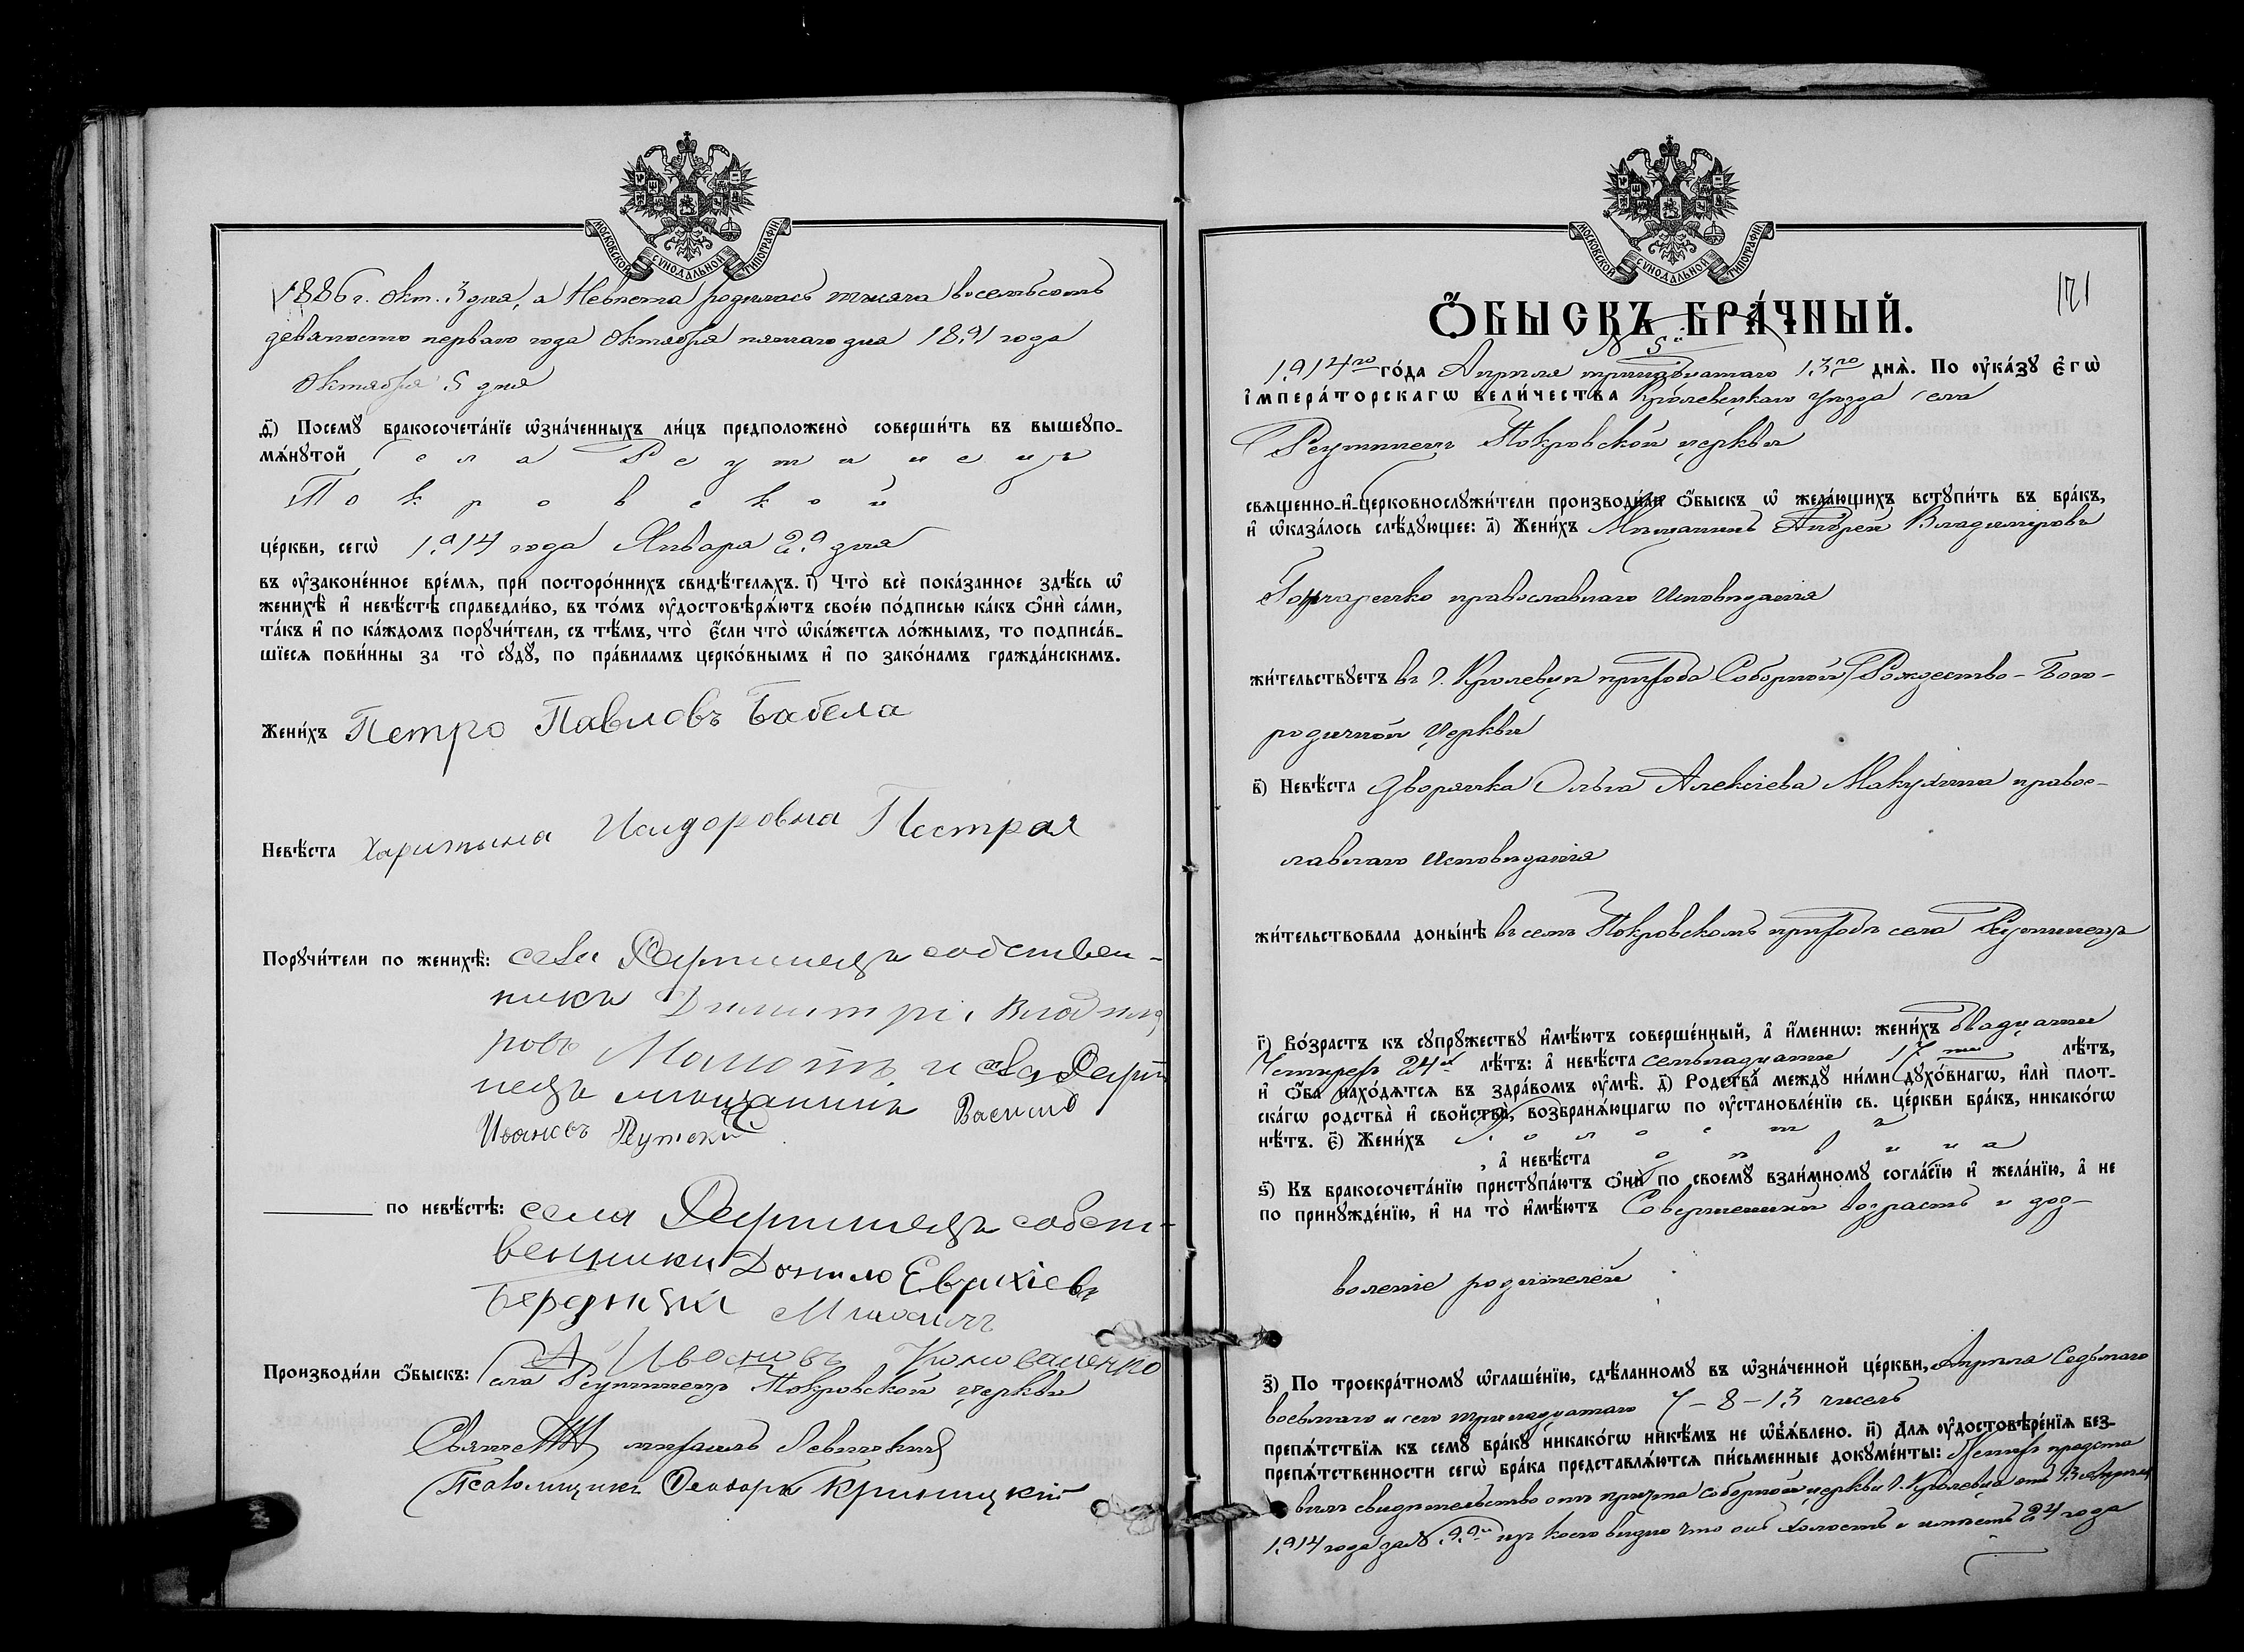 МОСКОВСКОЙ СУНОДАЛЬНОЙ ТИПОГРАФІИ
1886 г. Окт. 3 дня, а Невѣста родилась тысяча восемьсотъ
девяносто перваго года Октября пятаго дня 1891 года
Октября 5 дня
д҃і) Посемꙋ бракосочета́нїе ѡзна́ченныхъ ли́цъ предположено̀ соверши́ть въ вышеꙋпо-
мѧ́нꙋтой Села Реутинецъ
Покровской
це́ркви, сегѡ̀ 1914 года Января 29 дня
въ ѹ҆законе́нное вре́мѧ, при посторо́ннихъ свидѣ́телѧхъ. і҃) Что̀ всѐ пока́занное здѣ́сь ѡ҆
женихѣ̀ и҆ невѣ́стѣ справедли́во, въ то́мъ ѹ҆достовѣрѧ́ютъ свое́ю по́дписью ка́къ ѻ҆нѝ са́ми,
та́къ и҆ по ка́ждомъ порꙋчи́тели, съ тѣ́мъ, что̀ є҆́сли что̀ ѡ҆ка́жетсѧ ло́жнымъ, то подписа́в-
шїесѧ пови́нны за то̀ сꙋдꙋ̀, по пра́виламъ церко́внымъ и҆ по зако́намъ гражда́нскимъ.
Жени́хъ Петро Павловъ Бабела
Невѣ́ста Харитына Исидоровна Пестрая
Порꙋчи́тели по женихѣ̀: села Реутинецъ собствен-
никъ Димитрі Владими
ровъ и села Реути
нецъ мещанинъ Василий
Ивановъ
по невѣ́стѣ: села Реутинецъ собст-
венники Данило Евтихіевъ
Михаилъ
Ивановъ Коноваленко
Производи́ли ѻ҆́быскъ: Села Реутинецъ Покровской церкви
Священникъ Михаилъ Левитский
Псаломщикъ Ѳеодоръ Криницкій
МОСКОВСКОЙ СУНОДАЛЬНОЙ ТИПОГРАФІИ
121
Ѻ҆́БЫСКЪ БРА́ЧНЫЙ.
№ 5й
1914го го́да Апрѣля тринадцатаго 13го днѧ̀. По ѹ҆ка́зꙋ є҆гѡ̀
і҆мпера́торскагѡ вели́чества Кролевецкаго уѣзда села
Реутинецъ Покровской церкви
свѧщенно-и҆-церковнослꙋжи́тели производи́ли ѻ҆́быскъ ѡ҆ жела́ющихъ встꙋпи́ть въ бра́къ,
и҆ ѡ҆каза́лось слѣ́дꙋющее: а҃) Жени́хъ Мѣщанинъ Андрей Владиміровъ
Гончаренко православнаго Исповѣданія
жи́тельствꙋетъ въ г. Кролевцѣ прихода Соборной Рождество-Бого-
родичной Церкви
в҃) Невѣ́ста Дворянка Ольга Алексѣева Макухина правос-
лавнаго Исповѣданія
жи́тельствовала доны́нѣ въ семъ Покровскомъ приходѣ села Реутинецъ
г҃) Во́зрастъ къ сꙋпрꙋ́жествꙋ и҆мѣ́ютъ соверше́нный, а҆ и҆́менно: жени́хъ двадцати
Четырехъ 24х лѣ́тъ: а҆ невѣ́ста семнадцати 17ти лѣ́тъ,
и҆ ѻ҆́ба нахо́дѧтсѧ въ здра́вомъ ѹ҆мѣ̀. д҃) Родства̀ междꙋ ни́ми дꙋхо́внагѡ, и҆лѝ плот-
ска́гѡ родства̀ и҆ свойства̀, возбранѧ́ющагѡ по ѹ҆становле́нїю св. це́ркви бра́къ, никако́гѡ
нѣ́тъ. є҃) Жени́хъ Холостъ
, а҆ невѣ́ста дѣвица
ѕ҃) Къ бракосочета́нїю пристꙋпа́ютъ ѻ҆нѝ по своемꙋ̀ взаи́мномꙋ согла́сїю и҆ жела́нїю, а҆ не
по принꙋжде́нїю, и҆ на то̀ и҆мѣ́ютъ Совершенный возрастъ и доз-
воленіе родителей
з҃) По троекра́тномꙋ ѡ҆глаше́нїю, сдѣ́ланномꙋ въ ѡ҆зна́ченной це́ркви, Апрѣля Седьмаго
восьмаго и сего тринадцатаго 7-8-13 чиселъ
препѧ́тствїѧ къ семꙋ̀ бра́кꙋ никако́гѡ никѣ́мъ не ѡ҆б̾ѧ́влено. и҃) Длѧ ѹ҆достовѣре́нїѧ без-
препѧ́тственности сегѡ̀ бра́ка представлѧ́ютсѧ пи́сьменные докꙋме́нты: Женихъ предста
вилъ свидѣтельство отъ причта соборной церкви г. Кролевца отъ 13 Апрѣля
1914 года за № 99м изъ коего видно что онъ холостъ и имѣетъ 24 года